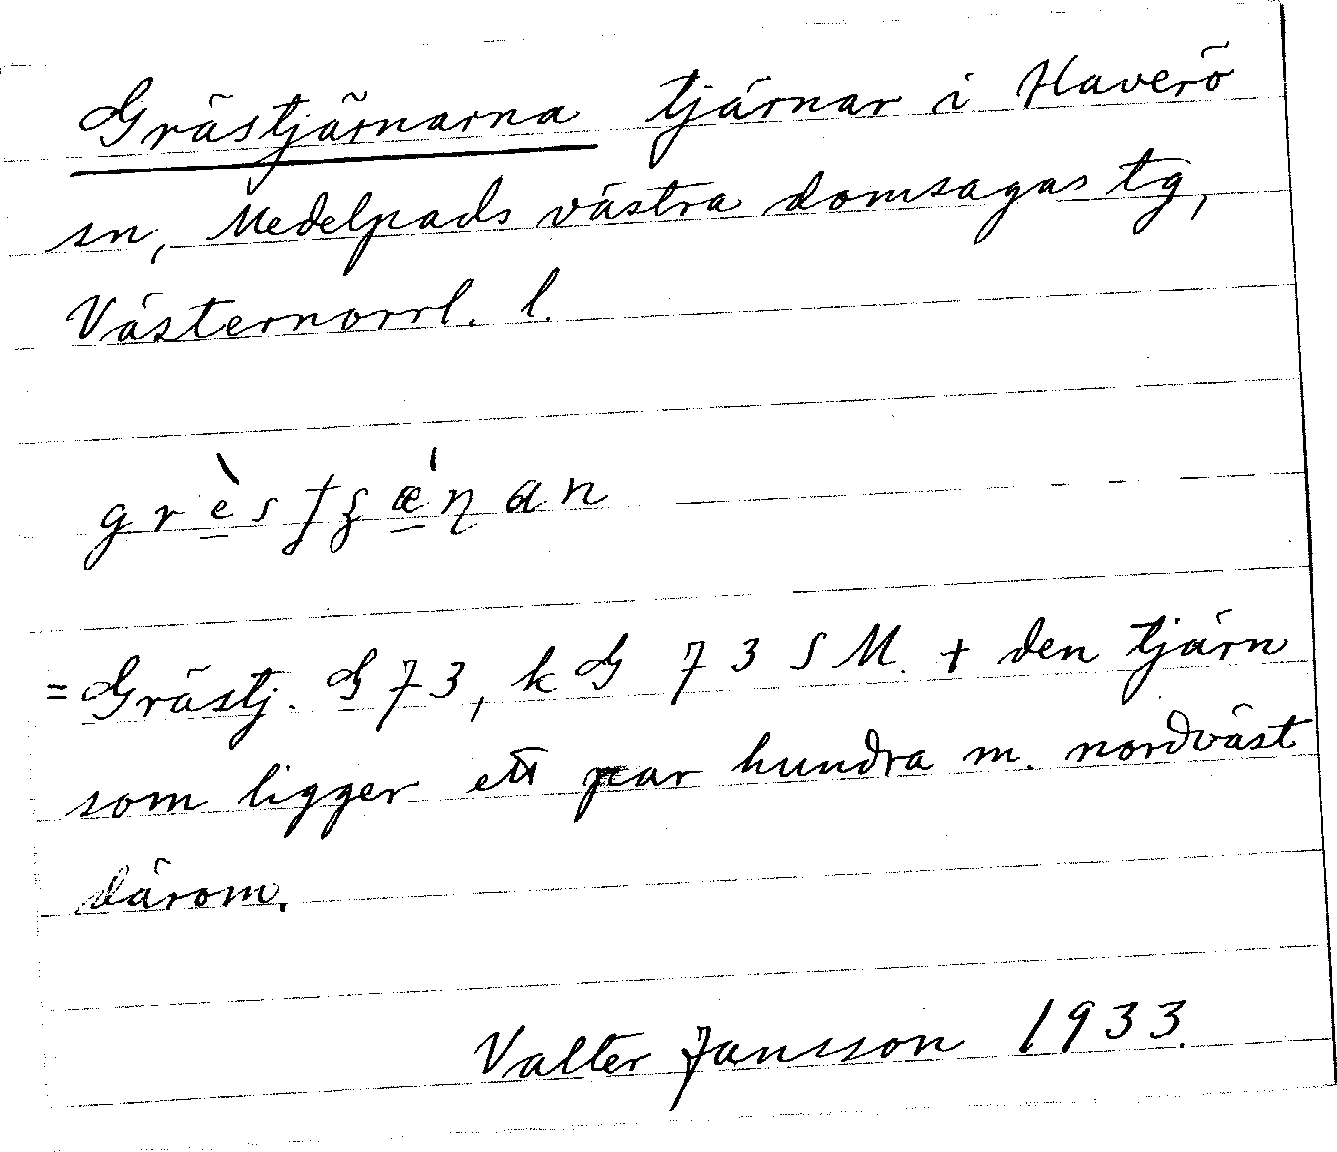 Grästjärnarna tjärnar i Haverö
sn, Medelpads västra domsagas tg,
Västernorrl. l.
= Grästj. G 73, k G 73 S M. + den tjärn
som ligger ett par hundra m. nordväst
därom.
Valter Jansson 1933.